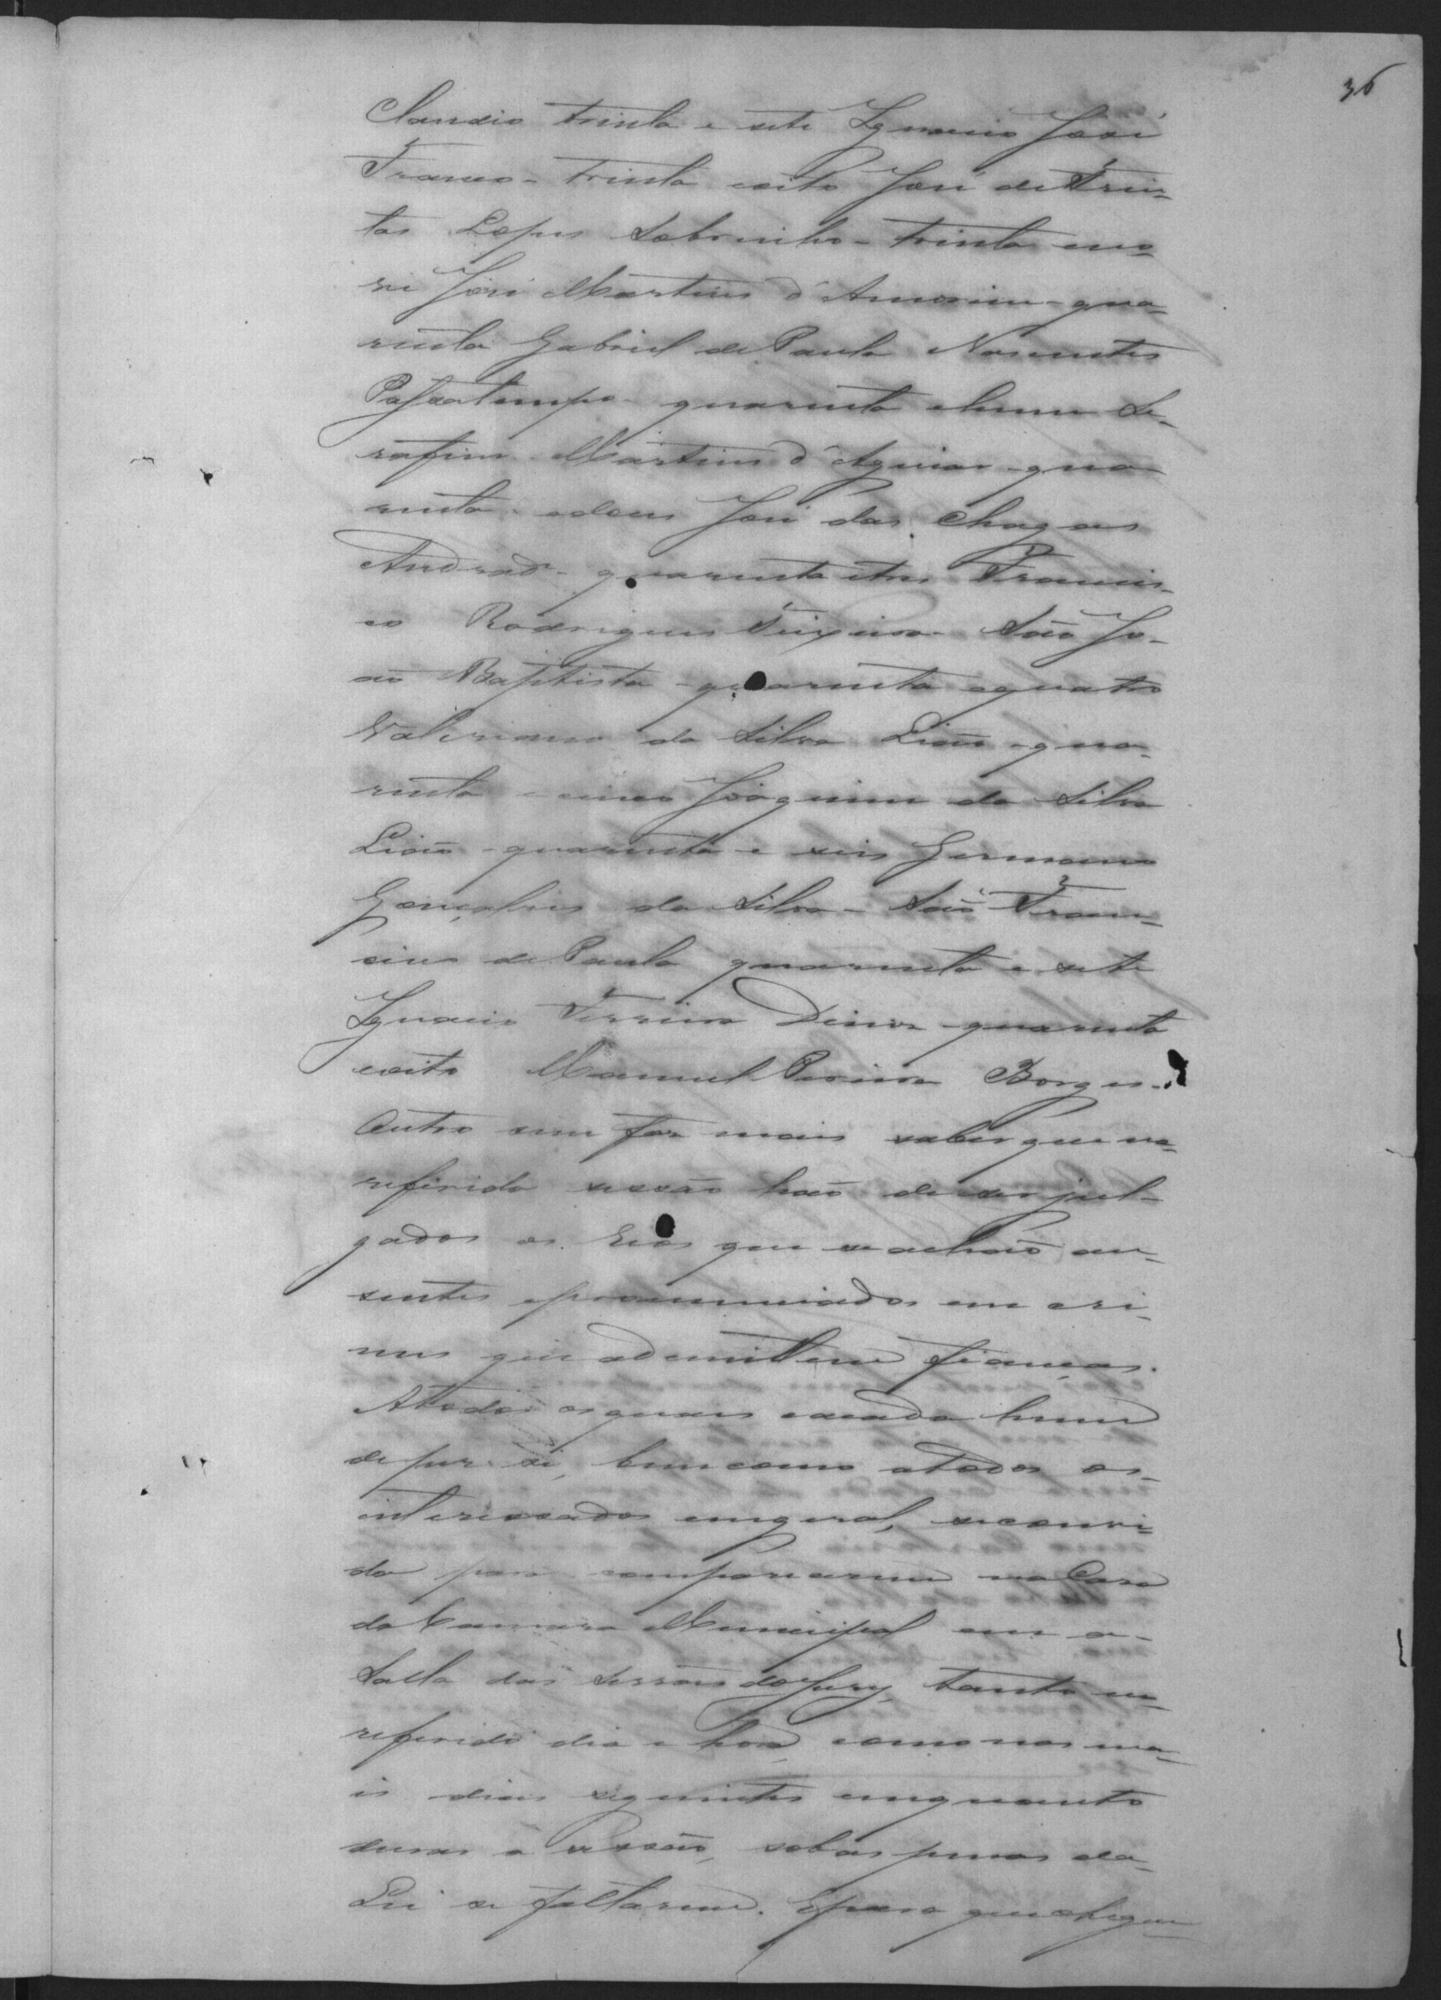 36
Claudio trinta e sete Ignacio José
Franco - trinta eoito José de Frei-
tas Lopes Sobrinho - trinta eno-
ve José Martins d'Amorim - qua-
renta Gabriel de Paula Nonentes
Passatempo - quarenta ehum Se-
rafim Martins d'Aguiar - qua-
renta edous José das Chagas
Andrade - quarenta etres Francis-
co Rodrigues Teixeira - São Jo-
ão Baptista - quarenta equatro
Valeriano da Silva Leão - qua-
renta e cinco Joaquim da Silva
Leão - quarenta e seis Germano
Gonçalves da Silva - São Fran-
cisco de Paula quarenta e sete
Ignacio Ferreira Diniz - quarenta
eoito Manuel Pereira Borges.
Outro sim faz mais saber que na
referida sessão hão de ser jul-
gados os Reos que se achão au-
sentes epronunciados em cri-
mes que admittem fianças.
Atodos osquaes eacada hum
de per si, bem como atodos os
interessados emgeral, seconvi-
da para comparecerem na Casa
da Camara Municipal em a
Salla das Sessões do Jury, tanto no
referido dia e hora, como nos ma-
is dias seguintes emquanto
durar a sessão, sobas penas da
Lei se faltarem. Epara que chegue